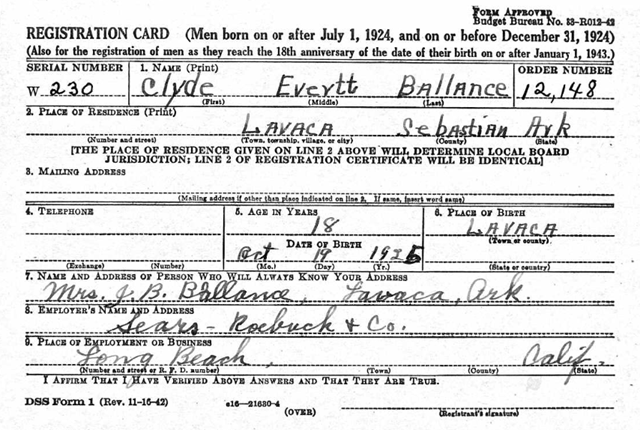 FORM APPROVED
Budget Bureau No. 33-R012-42
REGISTRATION CARD (Men born on or after July 1, 1924, and on or before December 31, 1924)
(Also for the registration of men as they reach the 18th anniversary of the date of their birth on or after January 1, 1943.)
SERIAL NUMBER 1. NAME (Print) ORDER NUMBER
W 230 Clyde Evertt Ballance 12,148
(First) (Middle) (Last)
2. PLACE OF RESIDENCE (Print)
LAVACA Sebastian Ark
(Number and street) (Town, township, village, or city) (County) (State)
[THE PLACE OF RESIDENCE GIVEN ON LINE 2 ABOVE WILL DETERMINE LOCAL BOARD
JURISDICTION; LINE 2 OF REGISTRATION CERTIFICATE WILL BE IDENTICAL]
3. MAILING ADDRESS
(Mailing address if other than place indicated on line 2. If same, insert word same)
4. TELEPHONE 5. AGE IN YEARS 6. PLACE OF BIRTH
18 LAVACA
DATE OF BIRTH (Town or county)
Oct 19
(Exchange) (Number) (Mo.) (Day) (Yr.) (State or country)
7. NAME AND ADDRESS OF PERSON WHO WILL ALWAYS KNOW YOUR ADDRESS
Mrs. J. B. Ballance, Lavaca, Ark.
8. EMPLOYER'S NAME AND ADDRESS
Sears - Roebuck & Co.
9. PLACE OF EMPLOYMENT OR BUSINESS
Long Beach, Calif.
(Number and street or R. F. D. number) (Town) (County) (State)
I AFFIRM THAT I HAVE VERIFIED ABOVE ANSWERS AND THAT THEY ARE TRUE.
DSS Form 1 (Rev. 11-16-42) 16—21630-4
(OVER) (Registrant's signature)